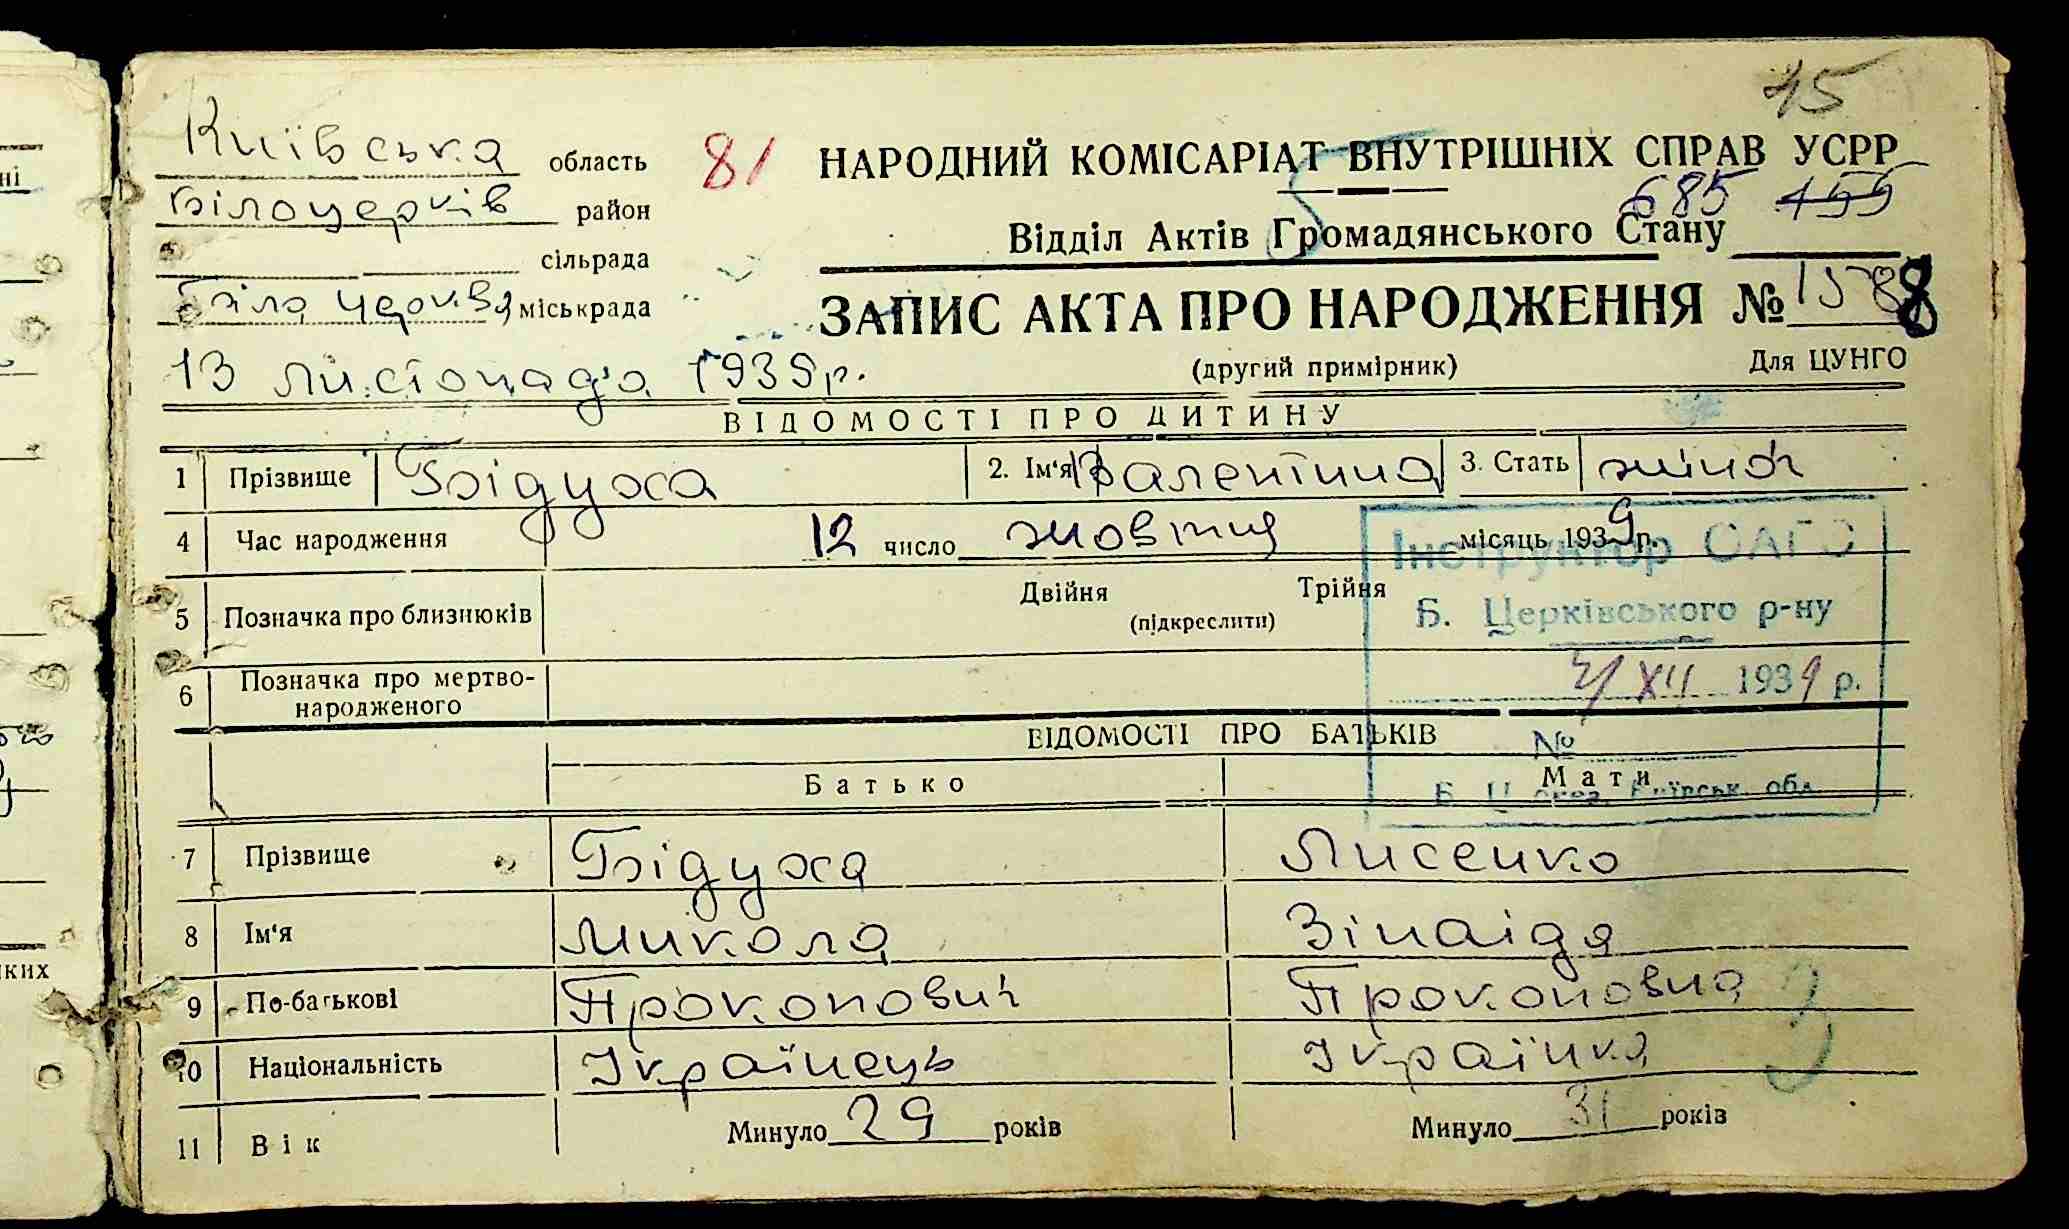 45
Київська область 81 НАРОДНИЙ КОМІСАРІАТ ВНУТРІШНІХ СПРАВ УСРР
Білоцерків район 685 455
Відділ Актів Громадянського Стану
сільрада
Біла Церква міськрада ЗАПИС АКТА ПРО НАРОДЖЕННЯ № 1588
13 листопада 1939 р. (другий примірник) Для ЦУНГО
ВІДОМОСТІ ПРО ДИТИНУ
1 Прізвище Бідуха 2. Ім'я Валентина 3. Стать жіноч
4 Час народження 12 число жовтня місяць 1939 р.
Інструктор ОАГС
5 Позначка про близнюків Двійня Трійня
(підкреслити)
Б. Церківського р-ну
6 Позначка про мертво-
народженого
XII 1939 р.
ВІДОМОСТІ ПРО БАТЬКІВ
№
Батько Мати
Київськ. обл.
7 Прізвище Бідуха Лисенко
8 Ім'я Микола Зінаіда
9 По-батькові Прокопович Прокоповна
10 Національність Українець Українка
11 Вік Минуло 29 років Минуло 31 років
ні
ких